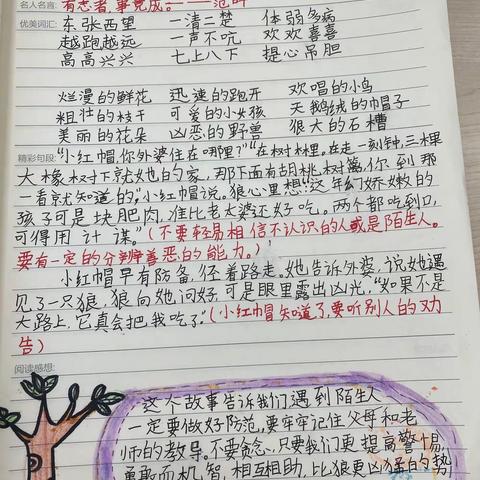 名人名言: 有志者,事竟成。——范晔
优美词汇: 东张西望 一清二楚 体弱多病
越跑越远 一声不吭 欢欢喜喜
高高兴兴 七上八下 提心吊胆
烂漫的鲜花 迅速的跑开 欢唱的小鸟
粗壮的枝干 可爱的小女孩 天鹅绒的帽子
美丽的花朵 凶恶的野兽 很大的石槽
精彩句段: “小红帽,你外婆住在哪里?”“在树林里。在走一刻钟,三棵
大橡树下就她的家,那下面有胡桃树篱,你到那
一看就知道的”,小红帽说。狼心里想:“这年幼娇嫩的
孩子可是块肥肉,准比老太婆还好吃。两个都吃到口,
可得用计谋。”(不要轻易相信不认识的人或是陌生人。
要有一定的分辨善恶的能力。)
小红帽早有防备,径着路走。她告诉外婆,说她遇
见了一只狼,狼向她问好,可是眼里露出凶光,“如果不是
大路上,它真会把我吃了”(小红帽知道了,要听别人的劝
告)
阅读感想:
这个故事告诉我们遇到陌生人
一定要做好防范,要牢牢记住父母和老
师的教导。不要贪念,只要我们更提高警惕,
勇敢而机智,相互相助,比狼更凶猛的势